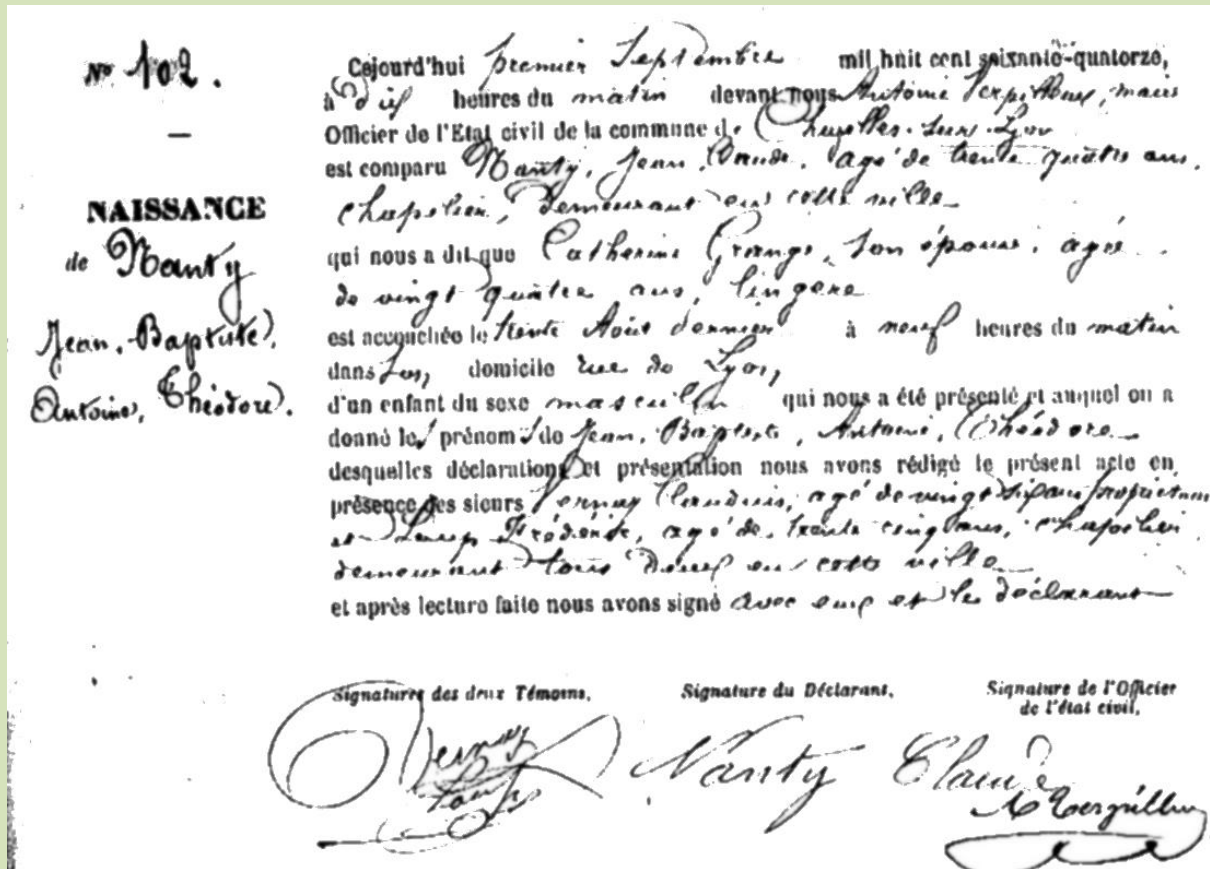 N° 102.
NAISSANCE
de Nanty
Jean, Baptiste,
Antoine, Théodore.
Cejourd'hui premier Septembre mil huit cent soixante-quatorze,
à dix heures du matin devant nous Antoine Verpilleux, maire
Officier de l'Etat civil de la commune de Chazelles-sur-Lyon
est comparu Nanty, Jean, Claude, agé de trente quatre ans,
chapelier, demeurant en cette ville
qui nous a dit que Catherine Grange, son épouse, agée
de vingt quatre ans, lingère
est accouchée le trente Août dernier à neuf heures du matin
dans son domicile rue de Lyon,
d'un enfant du sexe masculin qui nous a été présenté et auquel on a
donné les prénoms de Jean, Baptiste, Antoine, Théodore
desquelles déclaration et présentation nous avons rédigé le présent acte en
présence des sieurs Vernay Claudius, agé de vingt six ans, propriétaire
et Loup Frédéric, agé de trente cinq ans, chapelier
demeurant tous deux en cette ville
et après lecture faite nous avons signé avec eux et le déclarant
Signatures des deux Témoins,
Signature du Déclarant,
Signature de l'Officier
de l'état civil,
Vernay
Loup
Nanty Claude
A Verpilleux